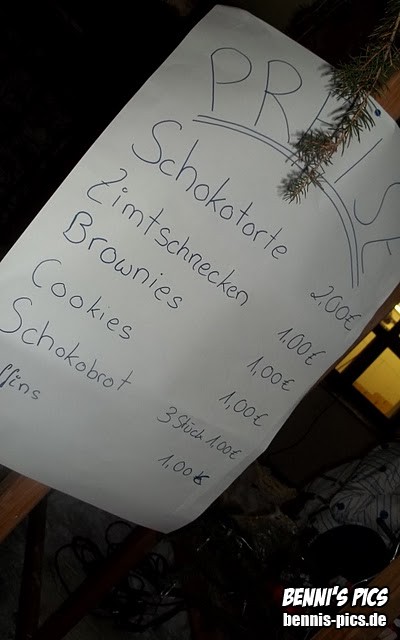 PREISE
Schokotorte 2,00€
Zimtschnecken 1,00€
Brownies 1,00€
Cookies 1,00€
Schokobrot 3 Stück 1,00€
ffins 1,00€
BENNI'S PICS
bennis-pics.de